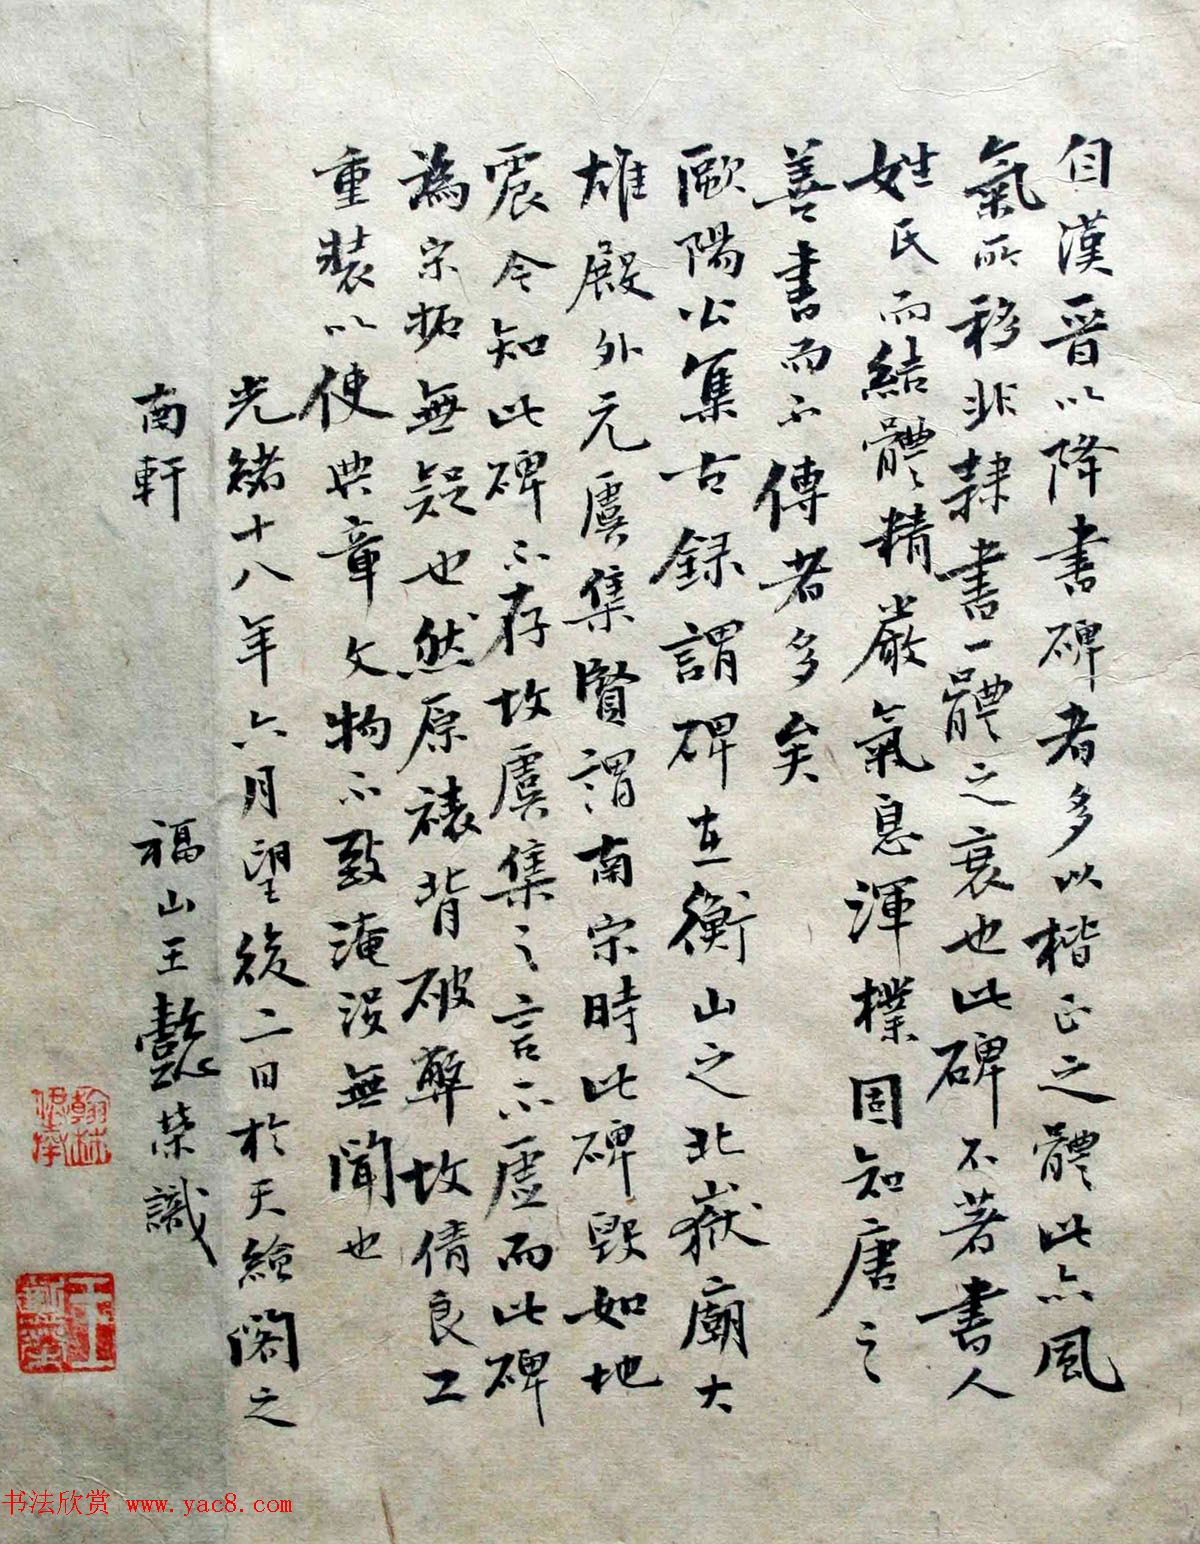 自漢晉以降書碑者多以楷正之體此亦風
氣所移非隷書一體之衰也此碑不著書人
姓氏而結體精嚴氣息渾樸固知唐之
善書而不傳者多矣
歐陽公集古録謂碑在衡山之北嶽廟大
雄殿外元虞集賢謂南宋時此碑毀如地
震今知此碑不存故虞集之言不虛而此碑
為宋拓無疑也然原裱背破弊故倩良工
重裝以使典章文物不致淹沒無聞也
光緒十八年六月望後二日於天繪閣之
南軒
福山王懿榮識
翰林
王懿榮
书法欣赏 www.yac8.com